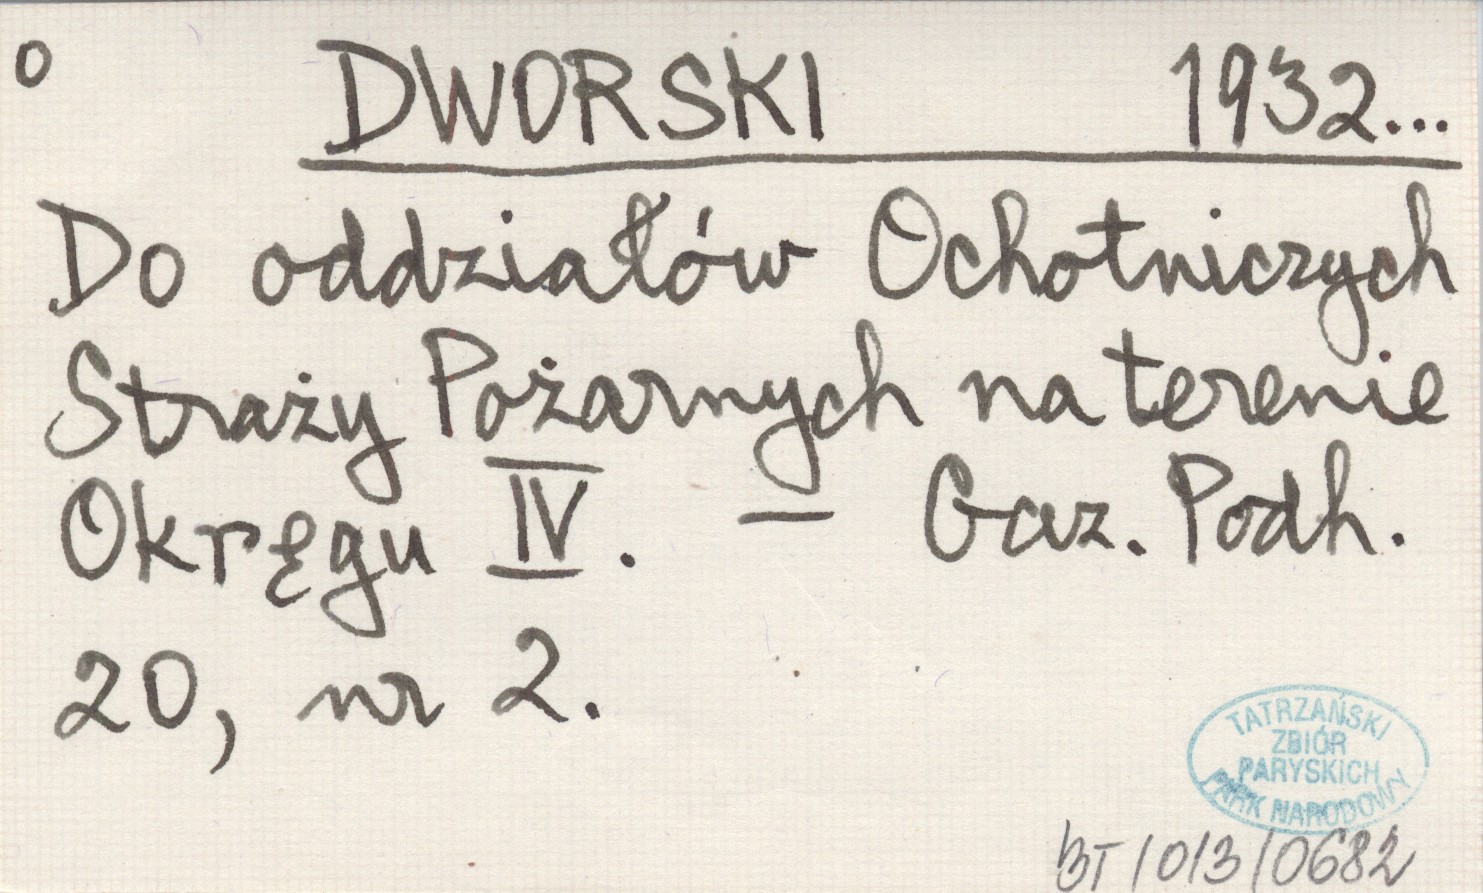 o DWORSKI 1932...
Do oddziałów Ochotniczych
Straży Pożarnych na terenie
Okręgu IV. — Gaz. Podh.
20, nr 2.
TATRZAŃSKI
ZBIÓR
PARYSKICH
PARK NARODOWY
BT/013/0682